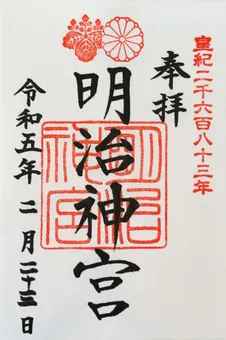 皇紀二千六百八十三年
奉拝
明治神宮
明治神宮
令和五年 二月二十三日